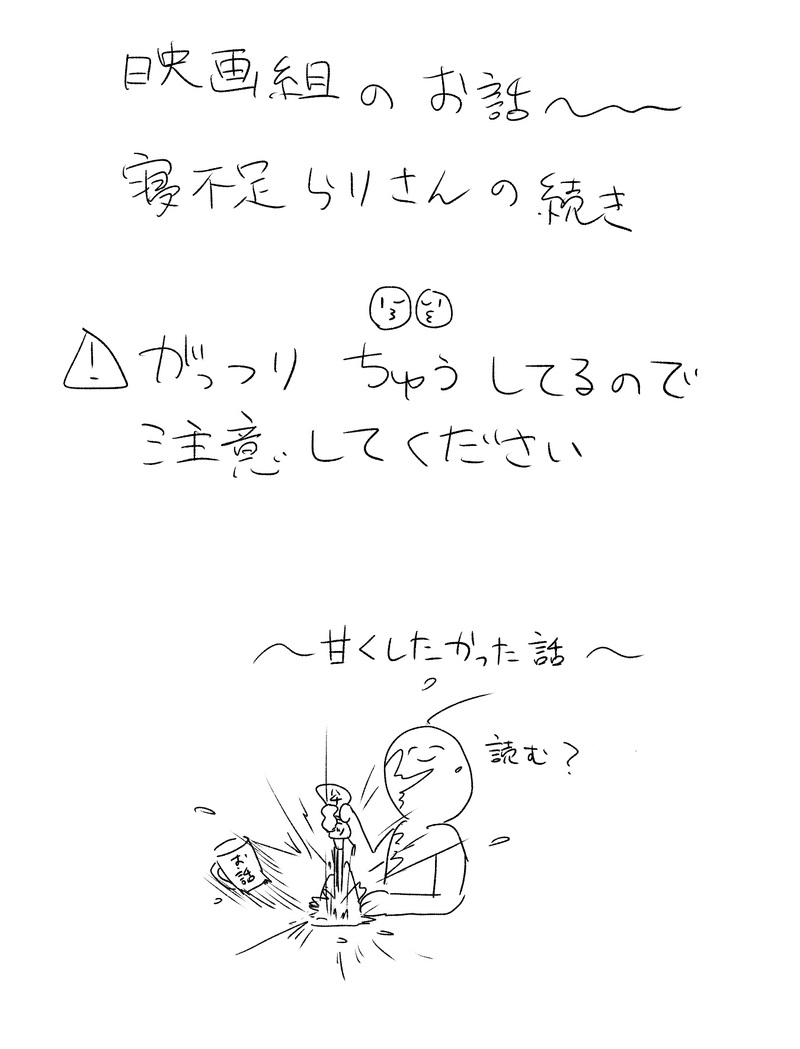 映画組のお話〜〜
寝不足らりさんの続き
がっつりちゅうしてるので
注意してください
〜甘くしたかった話〜
読む?
お話